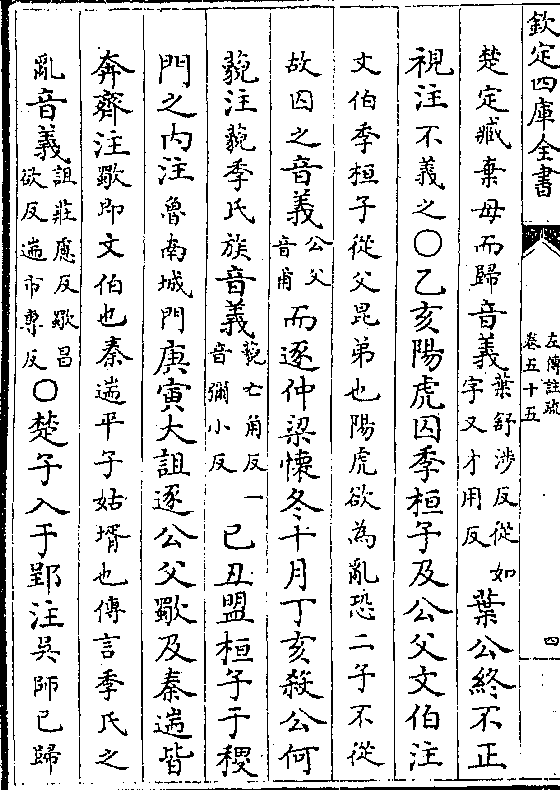 欽定四庫全書
左傳註疏
卷五十五
四
楚定臧棄母而歸音義葉舒涉反從如字又才用反葉公終不正
視注不義之○乙亥陽虎囚季桓子及公父文伯注
文伯季桓子從父昆弟也陽虎欲為亂恐二子不從
故囚之音義公父音甫而逐仲梁懷冬十月丁亥殺公何
藐注藐季氏族音義藐亡角反一音彌小反己丑盟桓子于稷
門之内注魯南城門庚寅大詛逐公父歜及秦遄皆
奔齊注歜即文伯也秦遄平子姑壻也傳言季氏之
亂音義詛莊慮反歜昌欲反遄市專反○楚子入于郢注吳師已歸